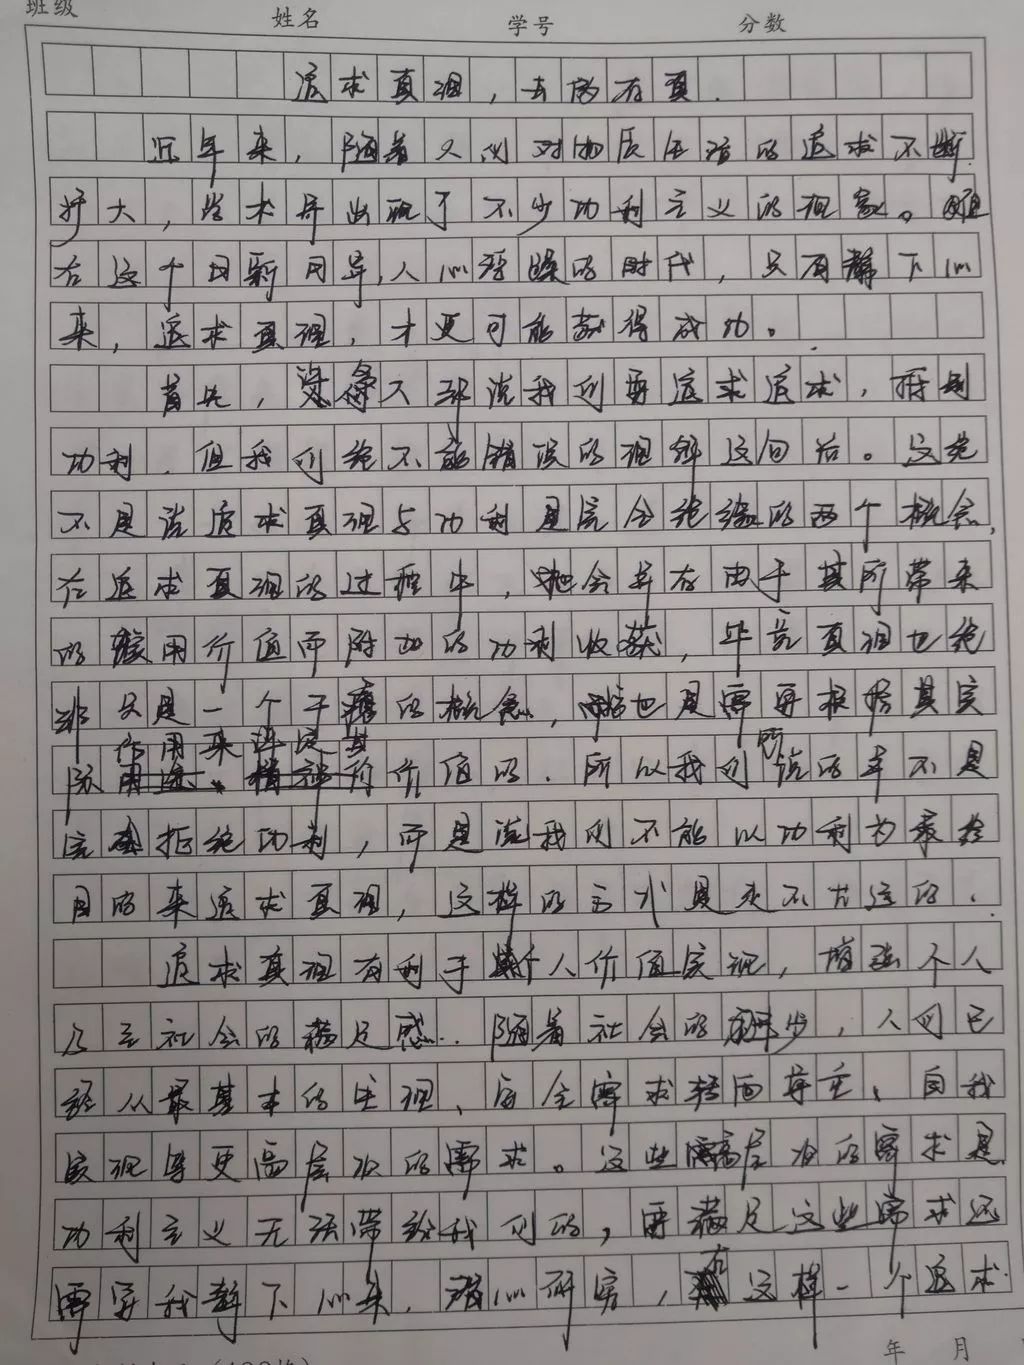 班级 姓名 学号 分数
追求真理，去伪存真.
近年来，随着人们对物质生活的追求不断
扩大，学术界出现了不少功利主义的现象。
在这个日新月异,人心浮躁的时代，只有静下心
来，追求真理，才更可能获得成功。
首先，人都说我们要追求追求，拒绝
功利.但我们绝不能错误的理解这句话。这绝
不是说追求真理与功利是完全绝缘的两个概念,
在追求真理的过程中，也会存在由于其所带来
的使用价值而附加的功利收获，毕竟真理也绝
非只是一个干瘪的概念，也是需要根据其实
际作用来评定其价值的.所以我们所说的并不是
完全拒绝功利，而是说我们不能以功利为最终
目的来追求真理，这样的是走不长远的.
追求真理有利于个人价值实现，增强个人
乃至社会的满足感.随着社会的进步，人们已
经从最基本的生理、安全需求转向尊重、自我
实现等更高层次的需求。这些高层次的需求是
功利主义无法带给我们的，要满足这些需求还
需要我静下心来，潜心研究，在这样一个追求
年 月